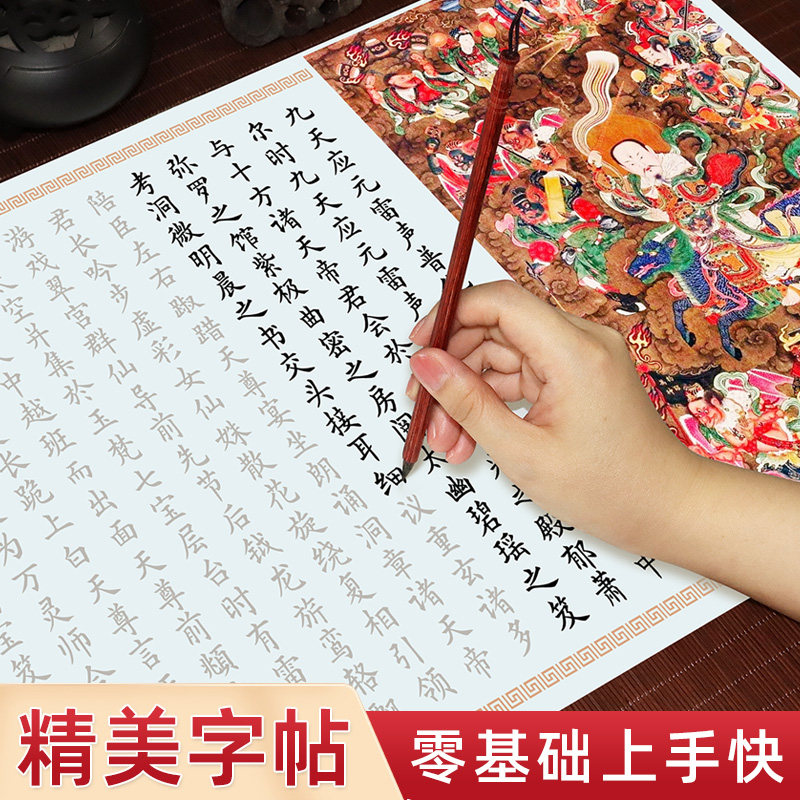 九天应元雷声普
尔时九天应元雷声
中
与十方诸天帝君会於
之殿郁萧
弥罗之馆紫极曲密之房阅太幽碧瑶之笈
考洞微明晨之书交头接耳细议重玄诸多
陪臣左右踧踖天尊宴坐朗诵洞章诸天帝
君长吟步虚彩女仙姝散花旋绕复相引领
游戏翠宫群仙导前先节后钺龙旂鸾辂
太空并集於玉梵七宝层台时有雷
中越班而出面天尊前頫
长跪上白天尊言
为万灵师
宝笈
精美字帖
零基础上手快